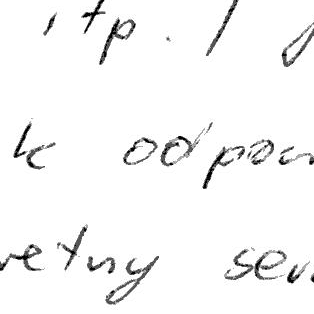 itp. /
k odpow
retny sen